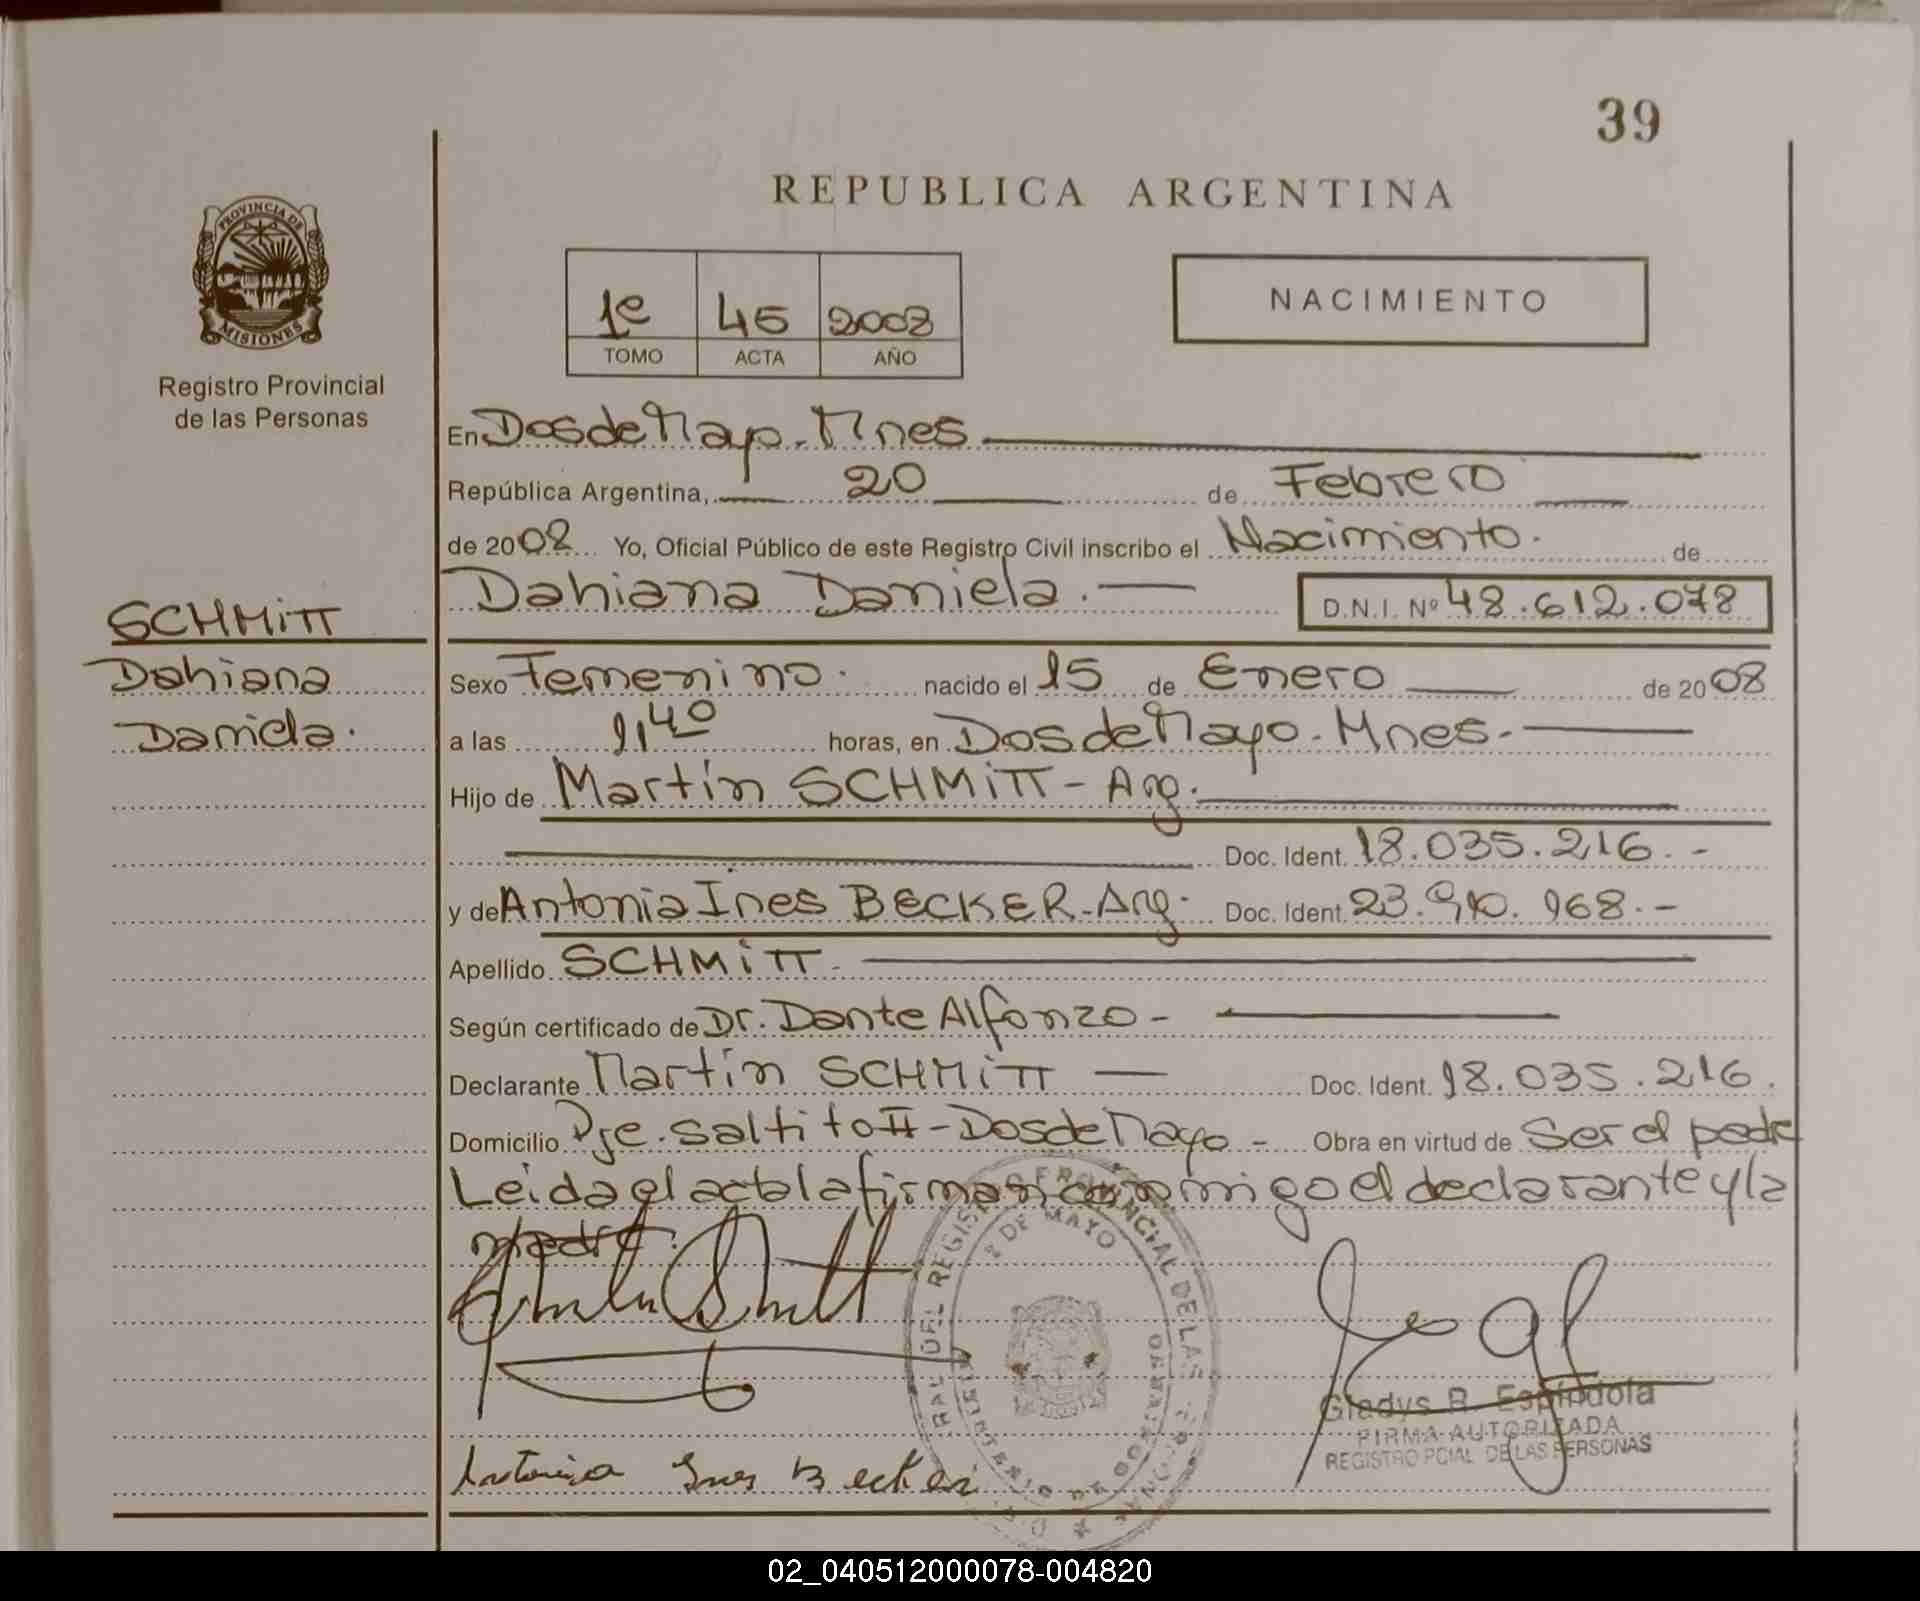 39
REPUBLICA ARGENTINA
PROVINCIA DE
MISIONES
Registro Provincial
de las Personas
1e 45 2008
TOMO ACTA AÑO
NACIMIENTO
En Dos de Mayo. Mnes
República Argentina, 20 de Febrero
de 2008 Yo, Oficial Público de este Registro Civil inscribo el Nacimiento. de
Dahiana Daniela. D.N.I. Nº 48.612.078
SCHMiTT
Dahiana
Daniela.
Sexo Femenino. nacido el 15 de Enero de 2008
a las horas, en Dos de Mayo. Mnes.
Hijo de Martín SCHMiTT - Arg.
Doc. Ident. 18.035.216.-
y de Antonia Ines BECKER - Arg. Doc. Ident. 23. 968.-
Apellido SCHMiTT
Según certificado de Dr. Dante Alfonzo -
Declarante Martín SCHMiTT Doc. Ident. 18.035.216.
Domicilio Pje. Saltito II - Dos de Mayo - Obra en virtud de Ser el padre
Leida el acta la firman conmigo el declarante y la
madre.
Antonia Ines Becker
2 DE MAYO
Gladys R. Espíndola
FIRMA AUTORIZADA
REGISTRO PCIAL DE LAS PERSONAS
02_040512000078-004820